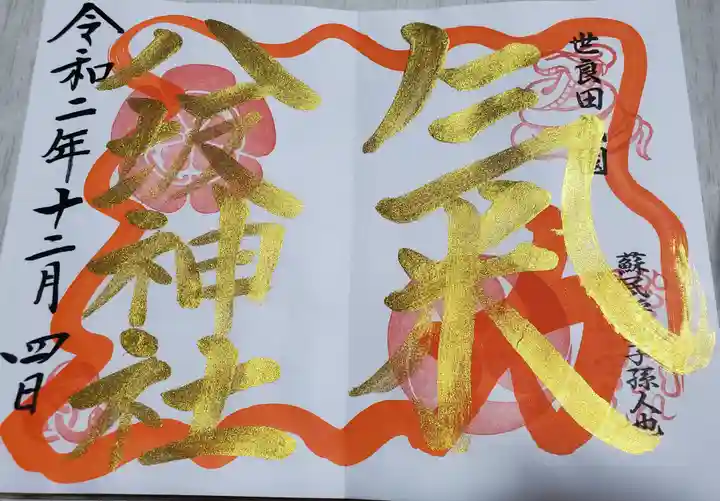 世良田
蘇民
子孫人也
氣
八坂神社
令和二年十二月四日